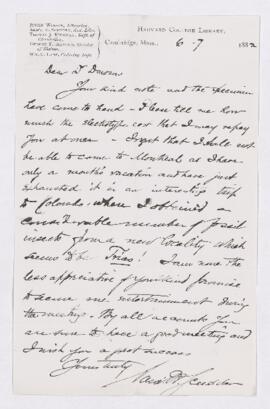 JUSTIN WINSOR, Librarian.
HARVARD COLLEGE LIBRARY,
Cambridge, Mass., 6. 7 1882
Dear Dr Dawson
Your kind note and the specimen
have come to hand - Please tell me how
much the electrotype cost that I may repay
you at once - I regret that I shall not
be able to come to Montreal as I have
only a month's vacation and have just
exhausted it in an interesting trip
to Colorado where I obtained a
considerable number of fossil
insects from a new locality which
seems to be Trias! I am none the
less appreciative of your kind promise
to secure me entertainment during
the meeting - By all accounts you
are sure to have a good meeting and
I wish you a great success
Yours truly
Samuel H. Scudder